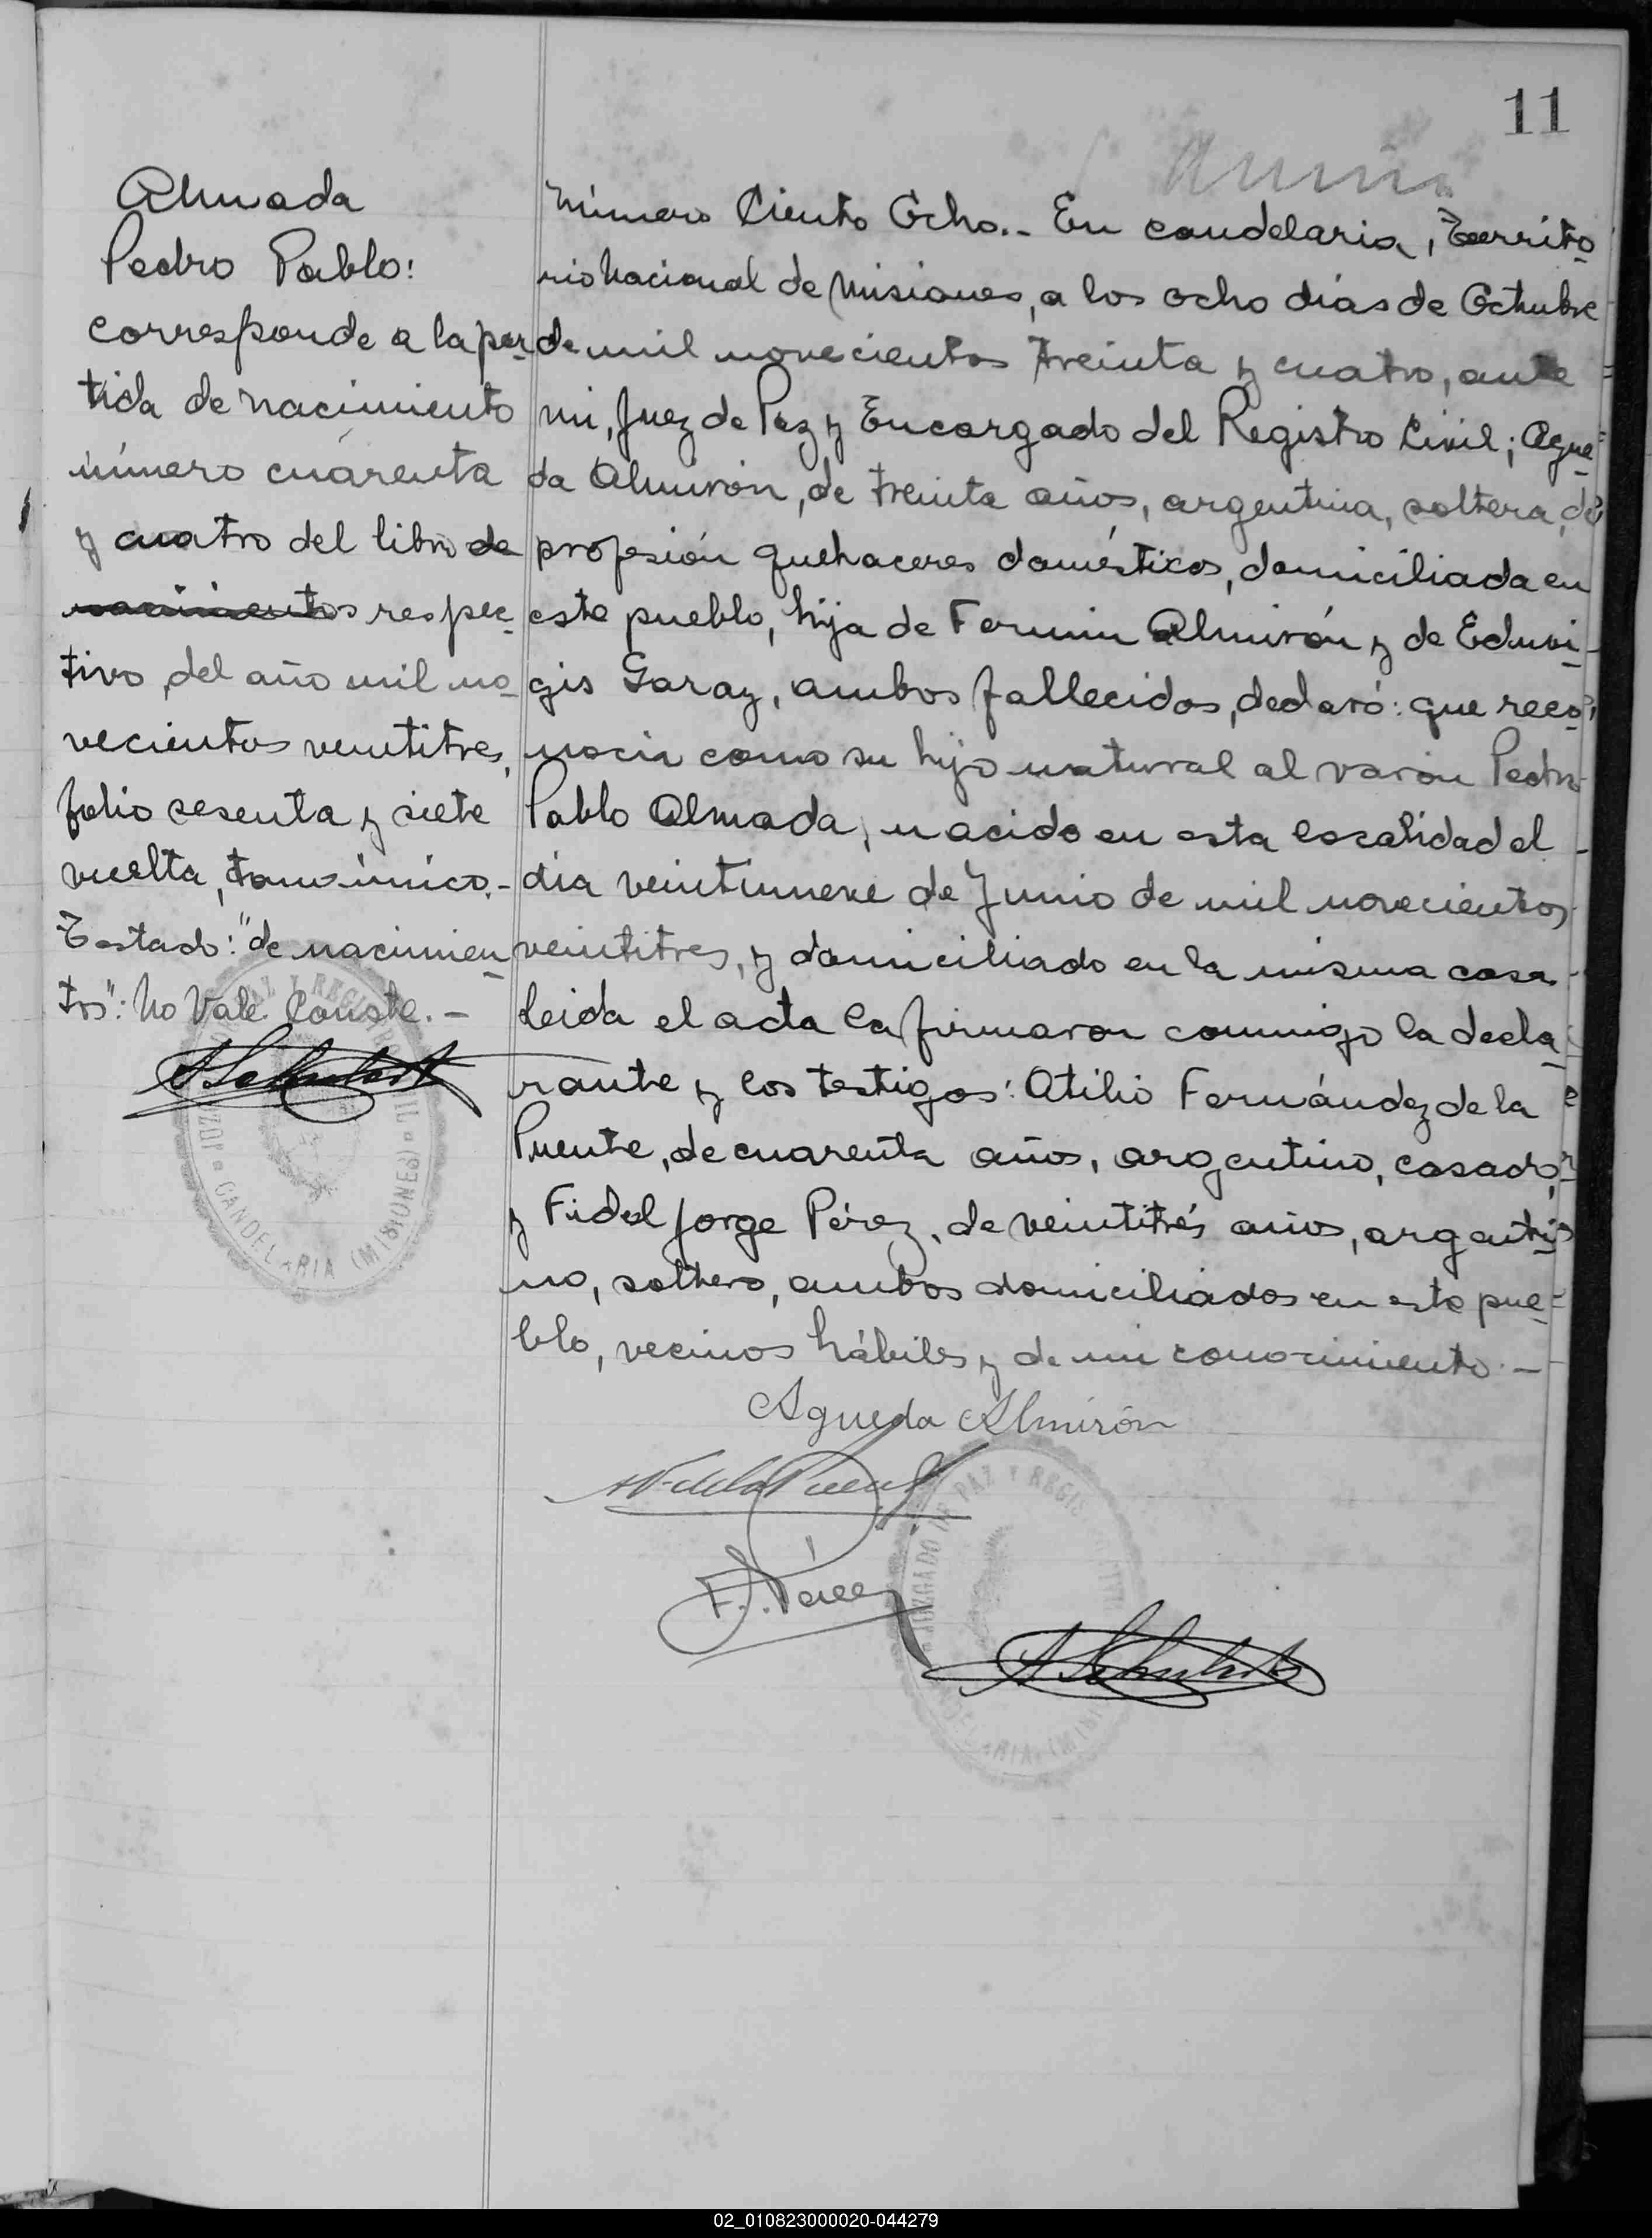 11
Almada
Pedro Pablo:
corresponde a la par-
tida de nacimiento
número cuarenta
y cuatro del libro de
nacimientos respec-
tivo, del año mil no-
vecientos veintitres,
folio sesenta y siete
vuelta, tomo único.-
Testado: "de nacimien-
tos": No Vale. Conste.-
Número Ciento Ocho.- En candelaria, Territo-
rio Nacional de Misiones, a los ocho días de Octubre
de mil novecientos treinta y cuatro, ante
mi, Juez de Paz y Encargado del Registro Civil; Ague-
da Almirón, de treinta años, argentina, soltera, de
profesión quehaceres domésticos, domiciliada en
este pueblo, hija de Fermin Almirón y de Eduvi-
gis Garay, ambos fallecidos, declaró: que reco-
nocía como su hijo natural al varón Pedro
Pablo Almada, nacido en esta localidad el
día veintinueve de Junio de mil novecientos
veintitres, y domiciliado en la misma casa.
Leida el acta la firmaron conmigo la decla-
rante y los testigos: Atilio Fernández de la
Puente, de cuarenta años, argentino, casado,
y Fidel Jorge Pérez, de veintitrés años, argenti-
no, soltero, ambos domiciliados en este pue-
blo, vecinos hábiles y de mi conocimiento.-
Agueda Almirón
F. J. Pérez
JUZGADO DE PAZ Y REGISTRO CIVIL
CANDELARIA (MISIONES)
02_010823000020-044279